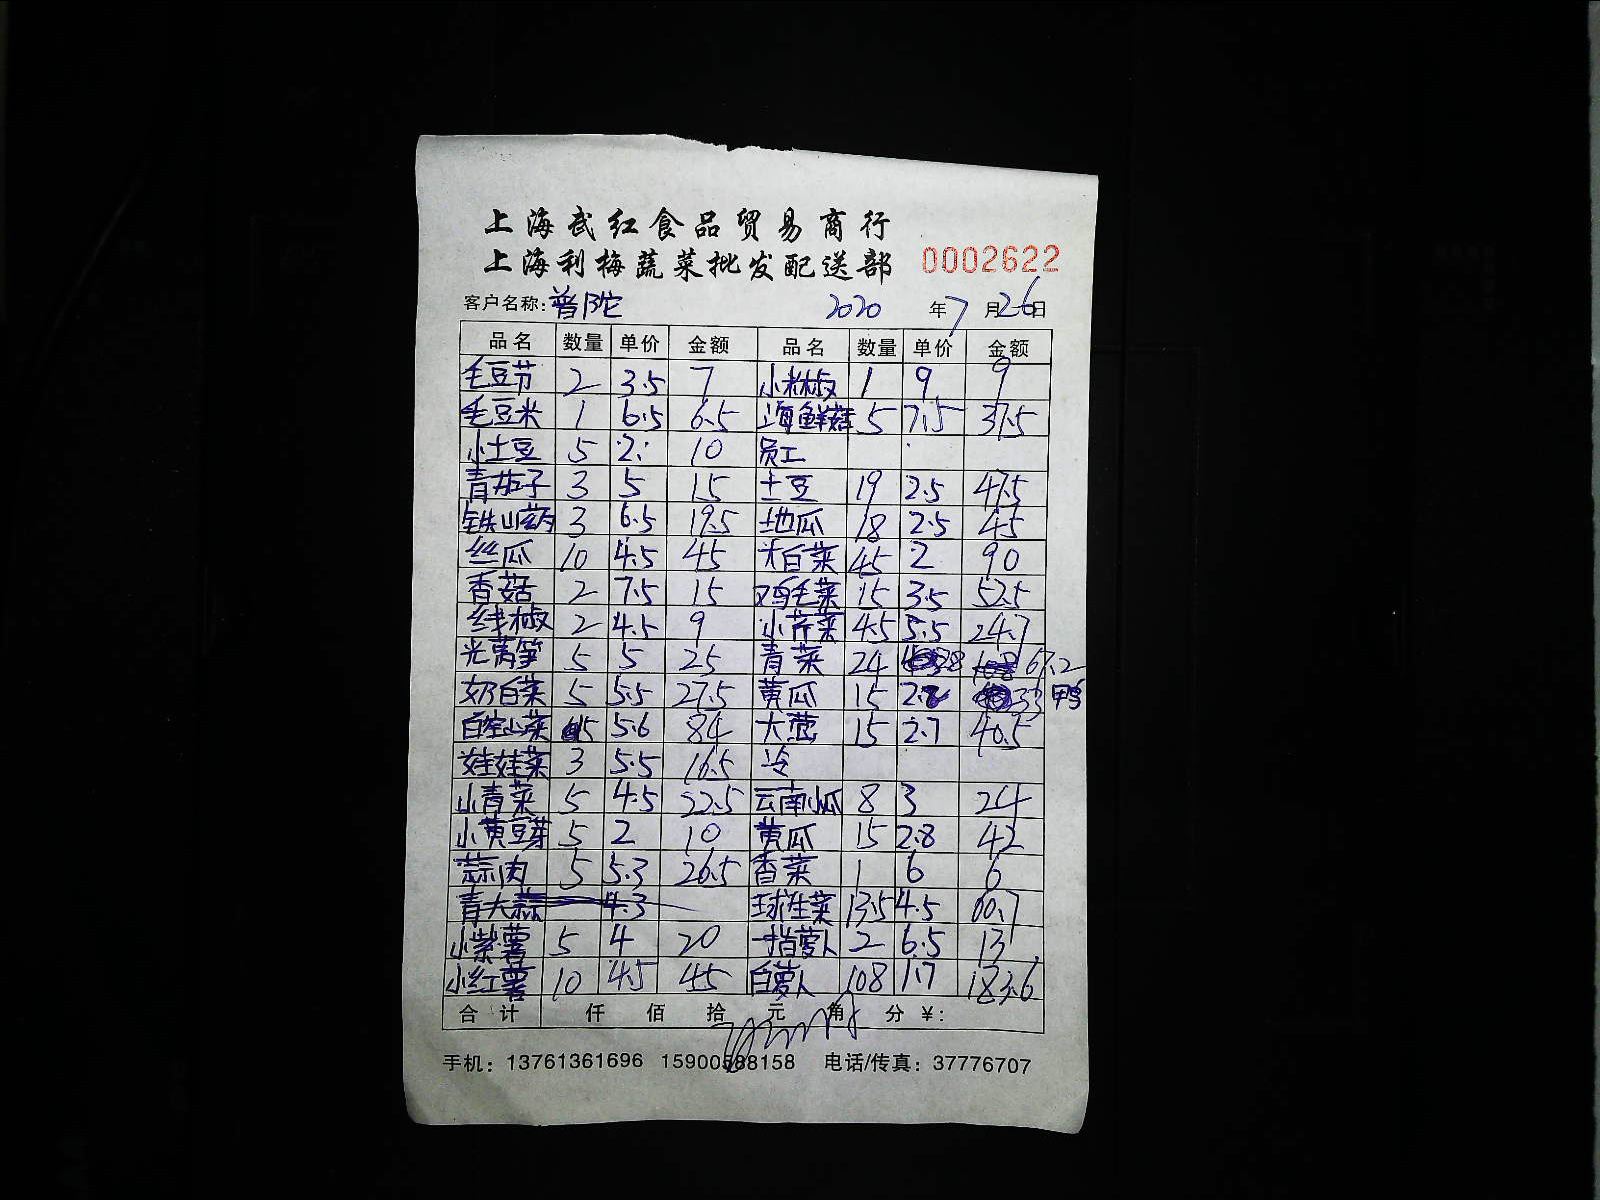 上海武红食品贸易商行
上海利梅蔬菜批发配送部 0002622
客户名称:普陀 2020 年 7 月 26 日
品名 数量 单价 金额 品名 数量 单价 金额
毛豆节 2 3.5 7 小米椒 1 9 9
毛豆米 1 6.5 6.5 海鲜菇 5 7.5 37.5
小土豆 5 2 10 员工
青茄子 3 5 15 土豆 19 2.5 47.5
铁山药 3 6.5 19.5 地瓜 18 2.5 45
丝瓜 10 4.5 45 大白菜 45 2 90
香菇 2 7.5 15 鸡毛菜 15 3.5 52.5
线椒 2 4.5 9 小芹菜 4.5 5.5 24.7
光莴笋 5 5 25 青菜 24 2.8 67.2
奶白菜 5 5.5 27.5 黄瓜 15 2.2 33 鸭
白空心菜 15 5.6 84 大葱 15 2.7 40.5
娃娃菜 3 5.5 16.5 冷
小青菜 5 4.5 22.5 云南小瓜 8 3 24
小黄豆芽 5 2 10 黄瓜 15 2.8 42
蒜肉 5 5.3 26.5 香菜 1 6 6
青大蒜 4.3 球生菜 13.5 4.5 60.7
小紫薯 5 4 20 一指萝卜 2 6.5 13
小红薯 10 4.5 45 白萝卜 108 1.7 183.6
合计 仟 佰 拾 元 角 分 ¥:
手机: 13761361696 15900588158 电话/传真: 37776707